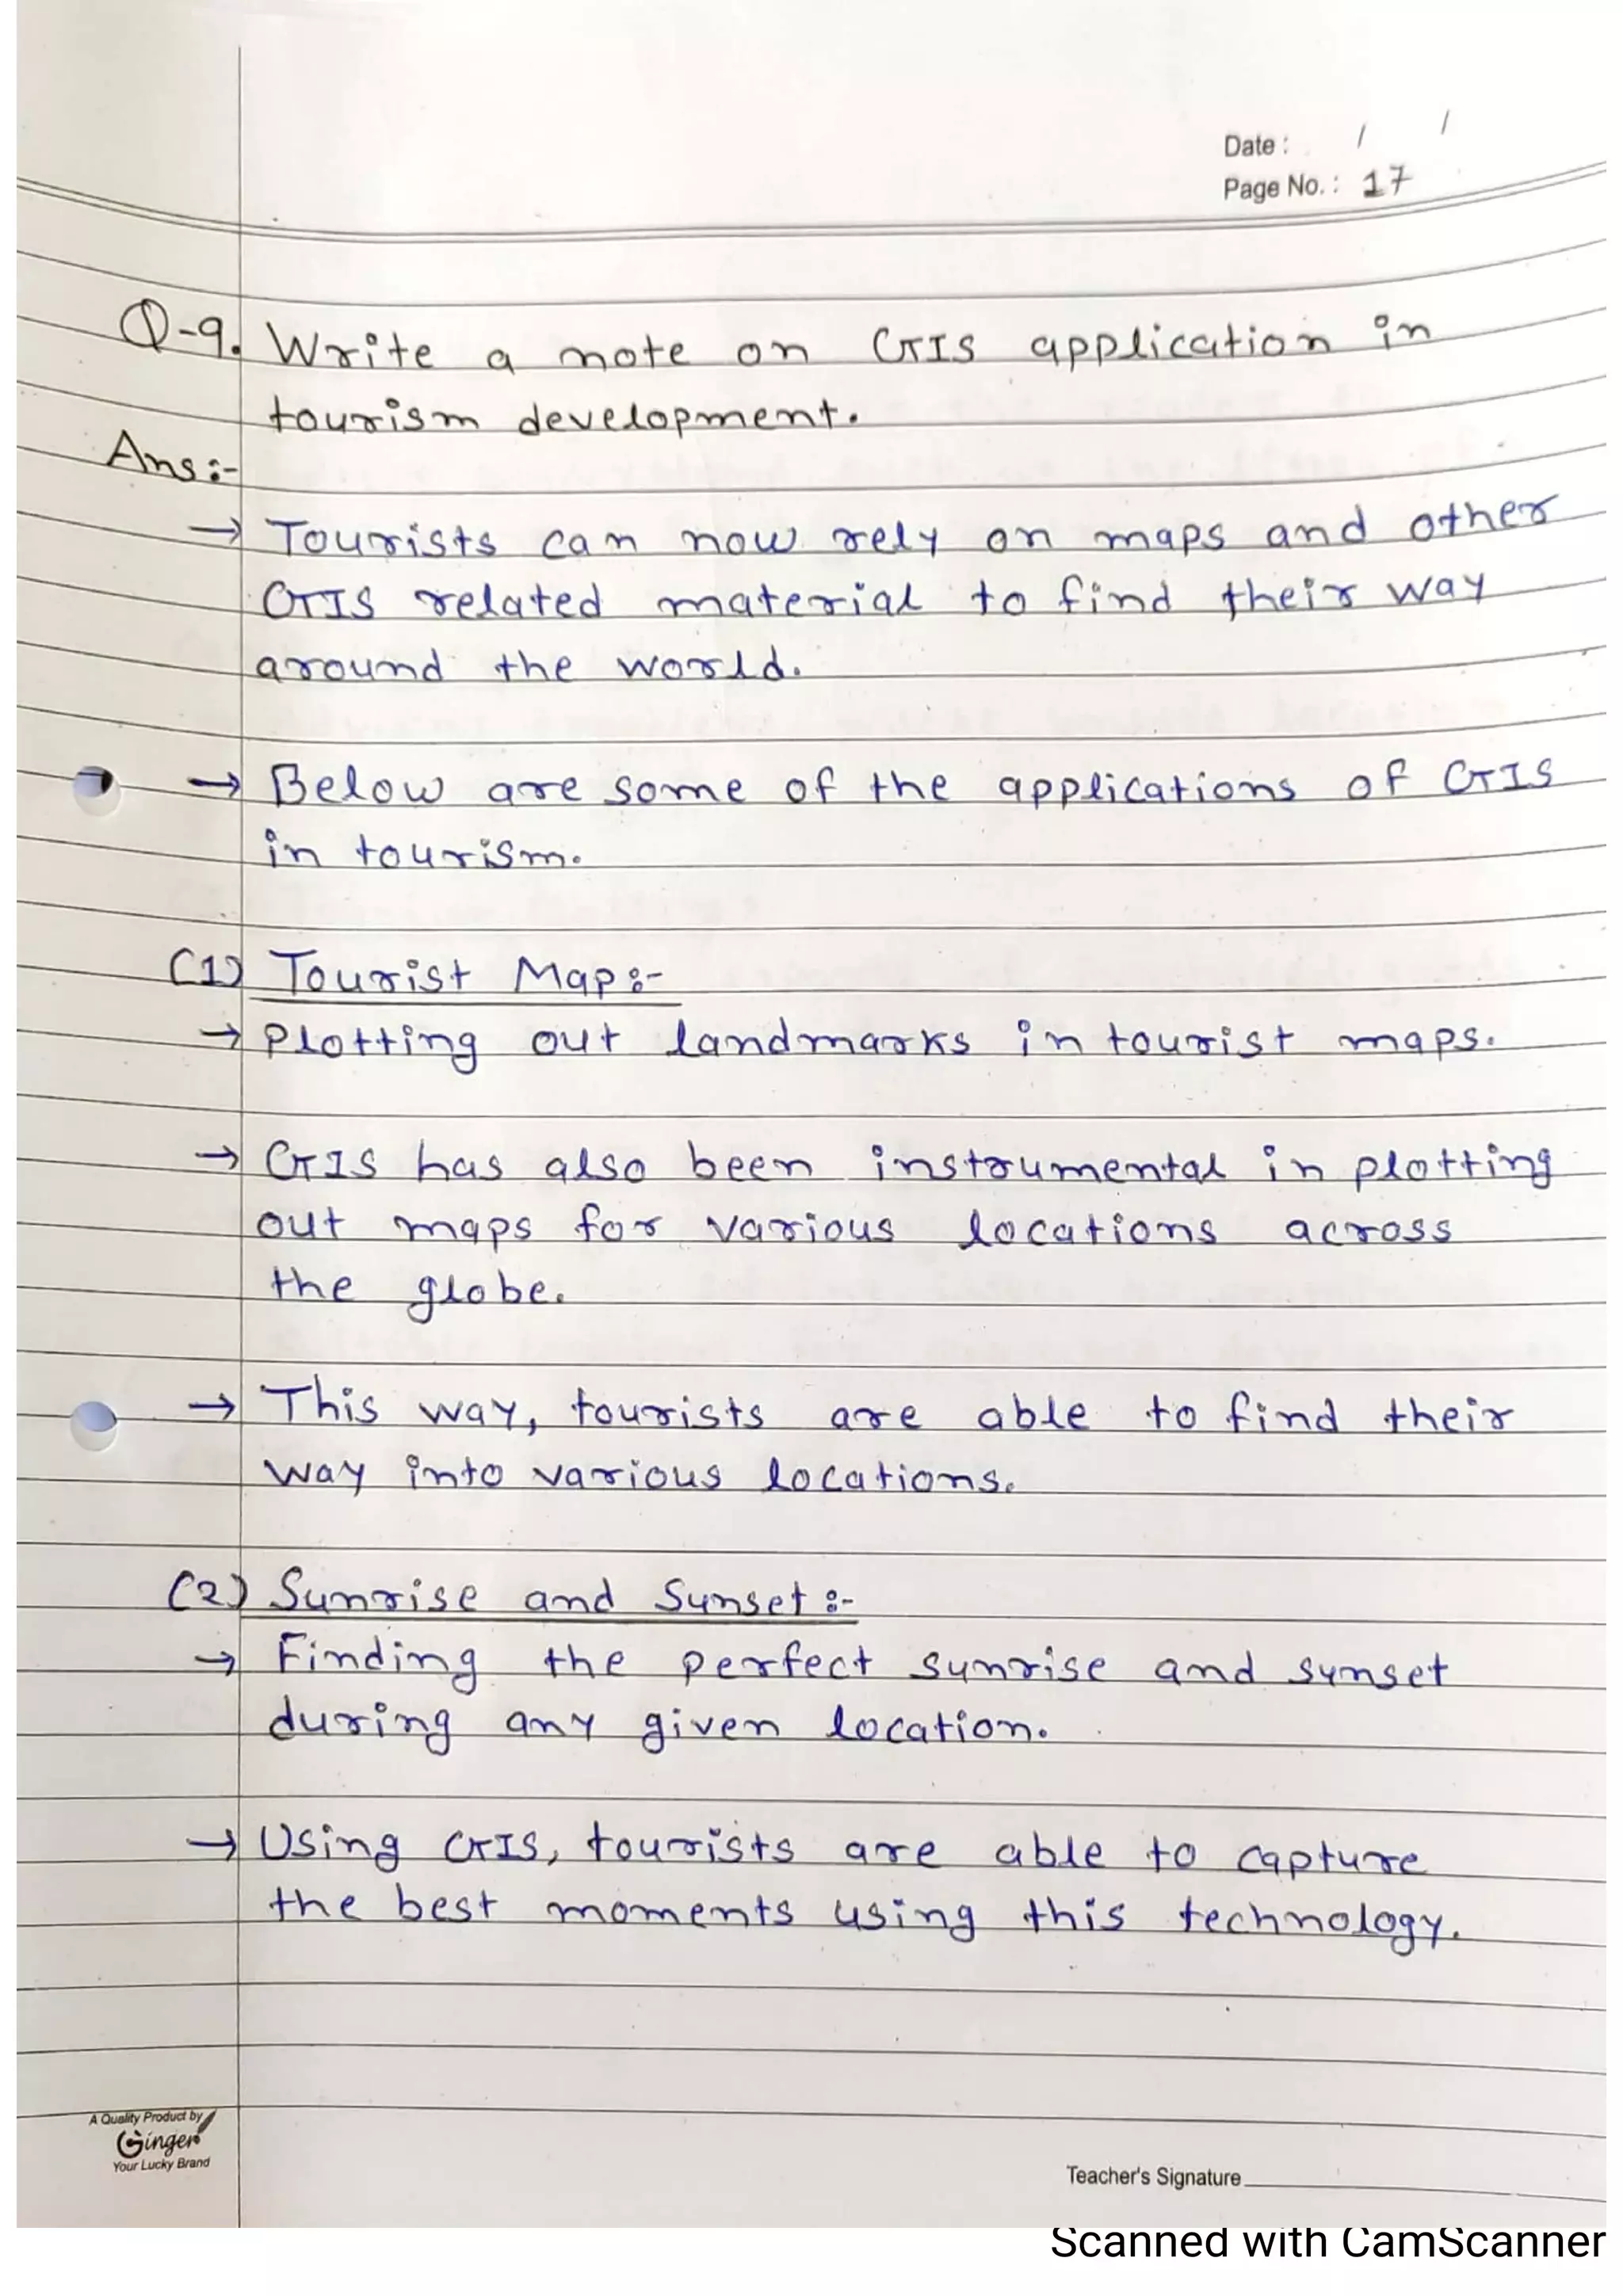 Date : / /
Page No. : 17
Q-9. Write a note on GIS application in
tourism development.
Ans :-
→ Tourists can now rely on maps and other
GIS related material to find their way
around the world.
→ Below are some of the applications of GIS
in tourism.
(1) Tourist Map :-
→ Plotting out landmarks in tourist maps.
→ GIS has also been instrumental in plotting
out maps for various locations across
the globe.
→ This way, tourists are able to find their
way into various locations.
(2) Sunrise and Sunset :-
→ Finding the perfect sunrise and sunset
during any given location.
→ Using GIS, tourists are able to capture
the best moments using this technology.
A Quality Product by
Ginger
Your Lucky Brand
Teacher's Signature
Scanned with CamScanner